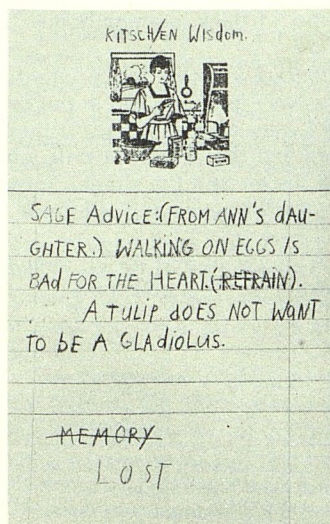 KITSCH/EN WISDOM.
SAGE AdVICE:(FROM ANN'S dAU-
GHTER.) WALKING ON EGGS IS
BAd FOR THE HEART.(REFRAIN).
A TULIP dOES NOT WANT
TO bE A GLAdIOLUS.
MEMORY
LOST